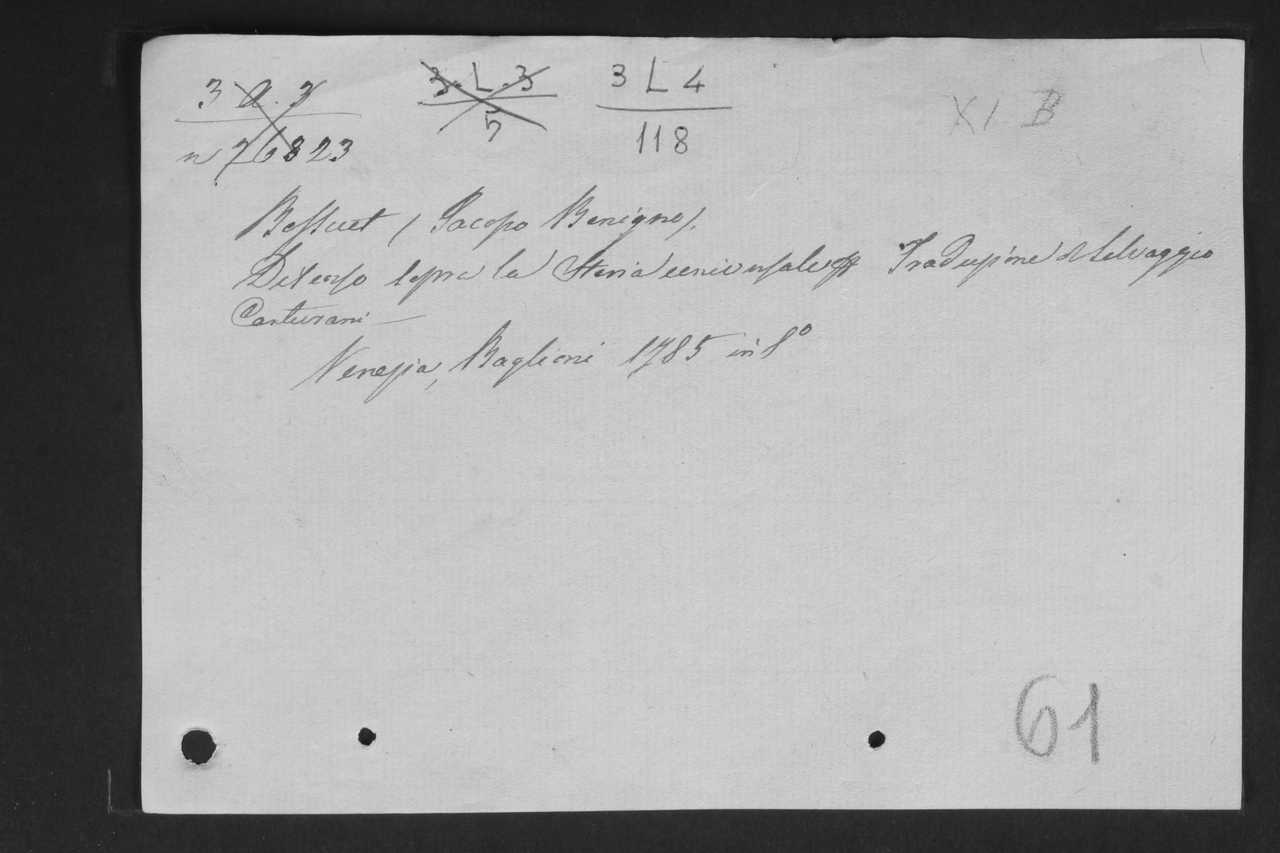 3 Q. 3
n 76823
3. L. 3
5
3 L 4
118
XI B
Bossuet (Jacopo Benigno).
Discorso sopra la Storia universale Traduzione di Selvaggio
Canturani
Venezia, Baglioni 1785 in 8º
61